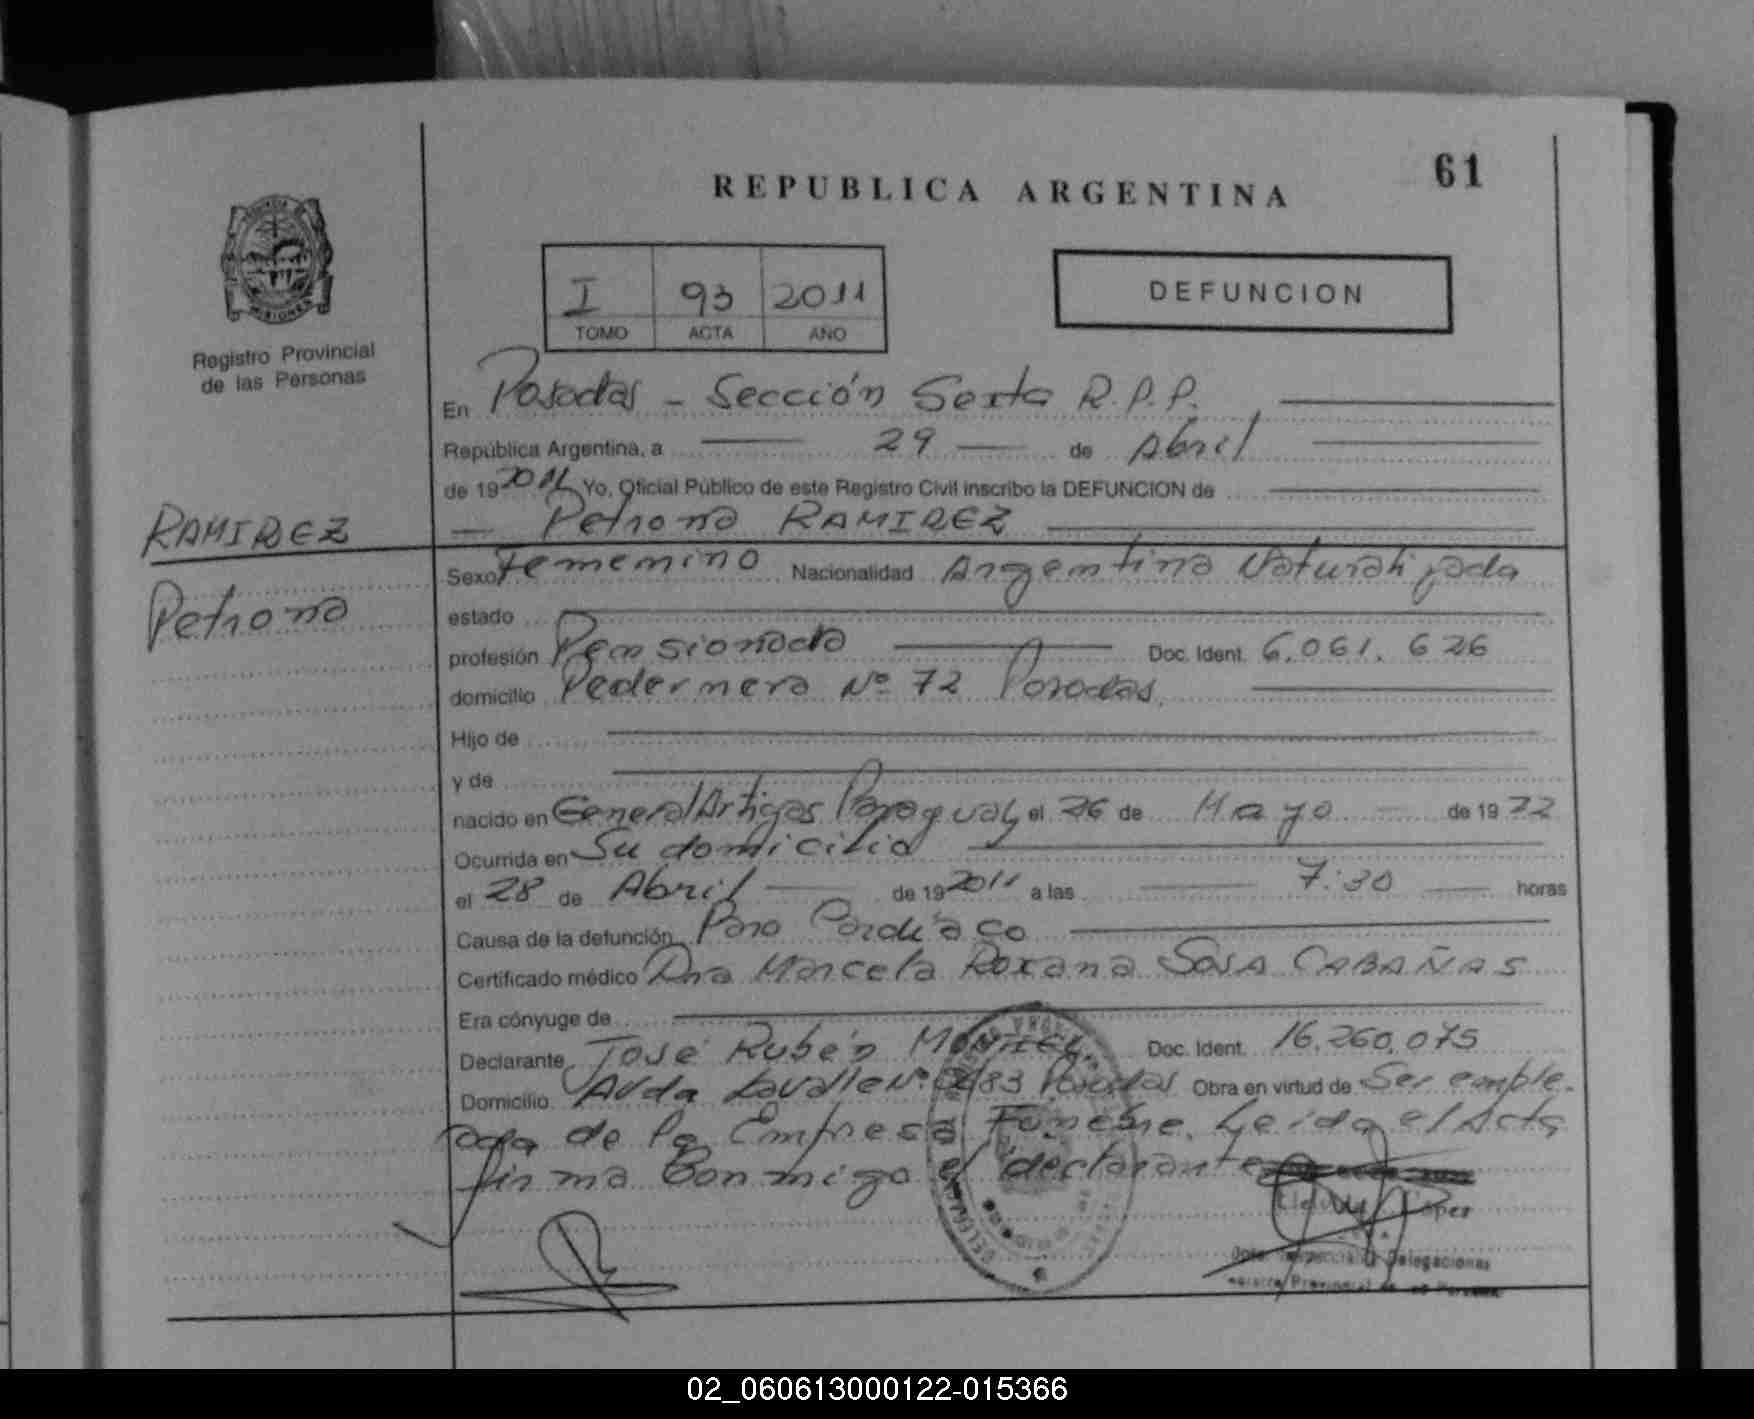 61
REPUBLICA ARGENTINA
I 93 2011
TOMO ACTA AÑO
DEFUNCION
MISIONES
Registro Provincial
de las Personas
En Posadas - Sección Sexta R.P.P.
República Argentina, a 29 de Abril
de 19 2011 Yo, Oficial Público de este Registro Civil inscribo la DEFUNCION de
RAMIREZ
Petrona RAMIREZ
Petrona
Sexo Femenino Nacionalidad Argentina Naturalizada
estado
profesión Pensionada Doc. Ident. 6.061.626
domicilio Pedernera Nº 72 Posadas.
Hijo de
y de
nacido en General Artigas Paraguay el 26 de Mayo de 19
Ocurrida en Su domicilio
el 28 de Abril de 19 2011 a las 7:30 horas
Causa de la defunción Paro Cardíaco
Certificado médico Dra Marcela Roxana SOSA CABAÑAS
Era cónyuge de
Declarante José Rubén Doc. Ident. 16.260.075
Domicilio Avda Lavalle Nº Posadas Obra en virtud de Ser emple-
de la Empresa Fúnebre. Leída el Acta
firma Conmigo el declarante
Delegaciones
02_060613000122-015366